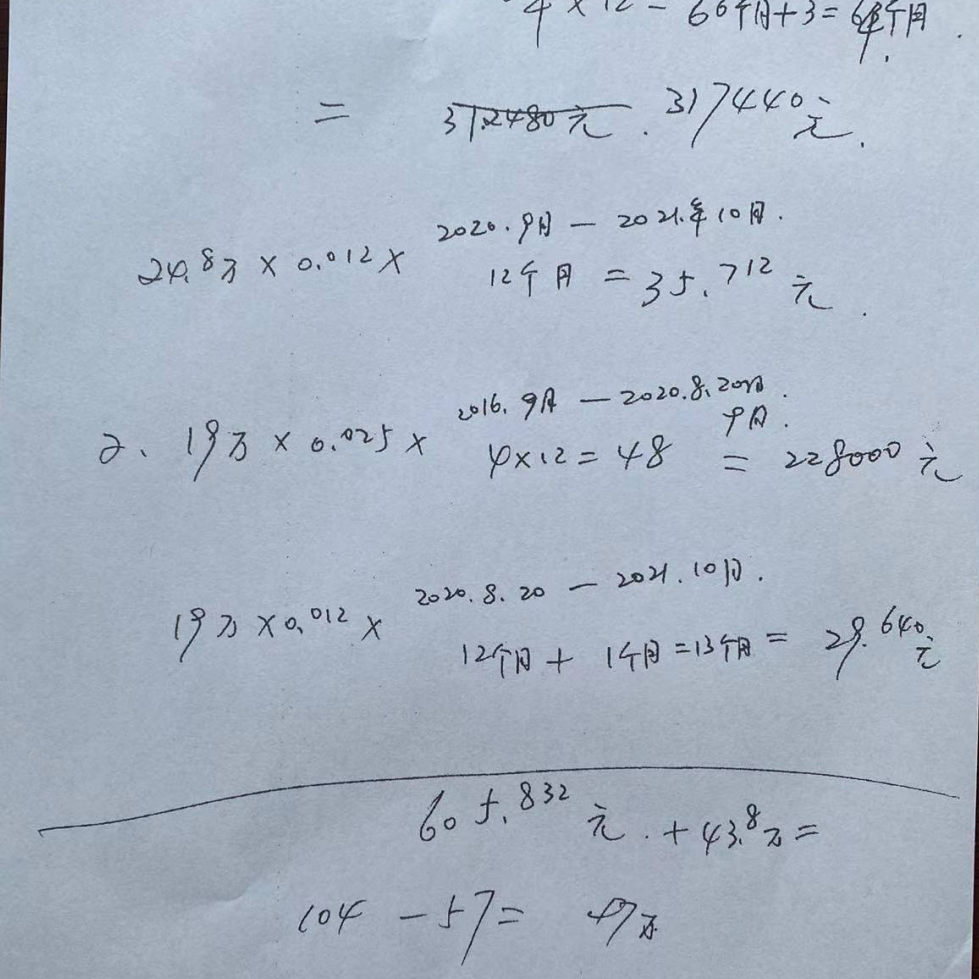 4×12- 66个月+3=64个月.
= 312480元. 317440元.
2020.9月-2021.年10月.
24.8万×0.012×
12个月=35.712元.
2016.9月-2020.8.20日.
9月.
2、19万×0.025× 4×12=48 =228000元
2020.8.20-2021.10月.
19万×0.012×
12个月+1个月=13个月=29.640元
605.832元.+43.8万=
104-57=47万